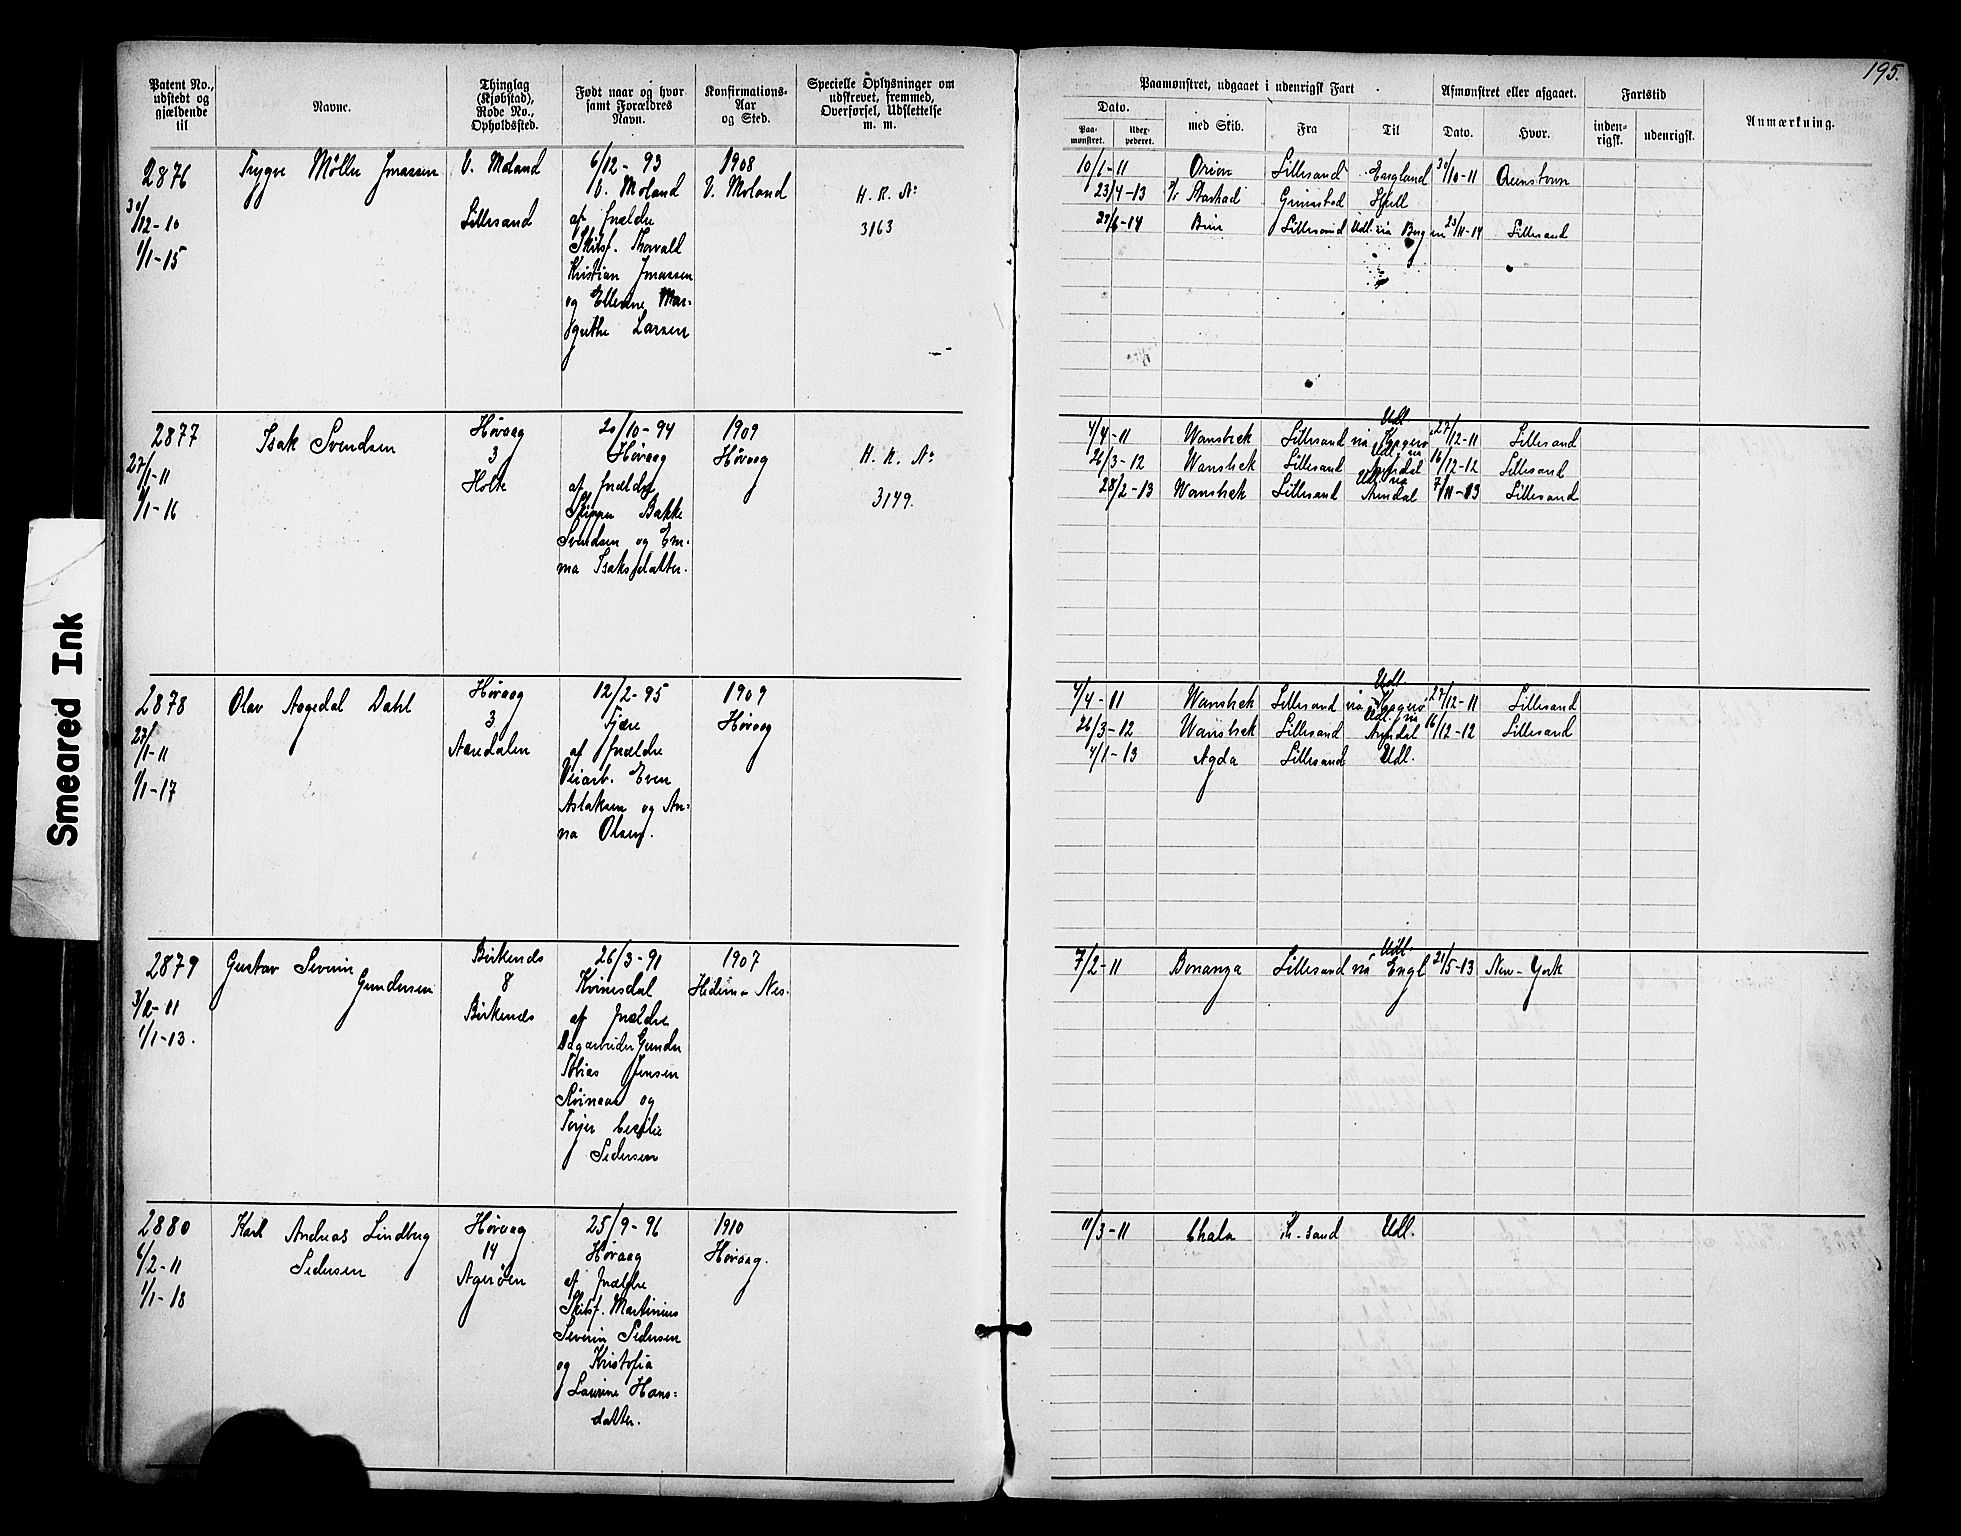 195.
Patent No., udstedt og gjældende til
Navne.
Thinglag (Kjøbstad), Rode No., Opholdssted.
Født naar og hvor samt Forældres Navn.
Konfirmations-Aar og Sted.
Specielle Oplysninger om udskrevet, fremmed, Overførsel, Udslettelse m. m.
Paamønstret, udgaaet i udenrigsk Fart
Dato.
Paa-mønstret.
Udex-pederet.
med Skib.
Fra
Til
Afmønstret eller afgaaet.
Dato.
Hvor.
Fartstid
inden-rigsk.
udenrigsk.
Anmærkning.
2876
30/12-10
1/1-15
Trygve Møller Jonassen
V. Moland
Lillesand
6/12-93
V. Moland
af Forældre
Skibsf. Thorvald
Kristian Jonassen
og Ellevine Mar-
grethe Larsen
1908
V. Moland
H. R. No
3163
10/1-11 Orion Lillesand England 30/10-11
23/4-13 Grimstad Hull
Lillesand Udl. via Bergen 23/11-14 Lillesand
2877
27/1-11
1/1-16
Isak Svendsen
Høvaag
3
Holte
20/10-94
Høvaag
af Forældre
Skipper Bakke
Svendsen og Em-
ma Isaksdatter.
1909
Høvaag
H. R. No
3149.
4/4-11 Wansbek Lillesand Udl. via Kragerø 27/12-11 Lillesand
26/3-12 Wansbek Lillesand Udl. via Arendal 16/12-12 Lillesand
28/2-13 Wansbek Lillesand Udl. via Arendal 7/11-13 Lillesand
2878
27/1-11
1/1-17
Olav Aagedal Dahl
Høvaag
3
Aamdalen
12/2-95
Fjære
af Forældre
Veiarb. Even
Aslaksen og An-
na Olsen.
1909
Høvaag
4/4-11 Wansbek Lillesand Udl. via Kragerø 27/12-11 Lillesand
26/3-12 Wansbek Lillesand Udl. via Arendal 16/12-12 Lillesand
4/1-13 Agda Lillesand Udl.
2879
3/2-11
1/1-13.
Gustav Severin
Gundersen
Birkenes
8
Birkenes
26/3-91
Kvinesdal
af Forældre
Dagarbeider Gunder
Tobias Jensen
og
Cecilie
Pedersen
1907
Nes.
7/2-11 Bonanza Lillesand Udl. via Engl 21/5-13 New-York
2880
6/2-11
1/1-18
Karl Andreas Lindberg
Pedersen
Høvaag
14
Agerøen
25/9-96
Høvaag
af Forældre
Skibsf. Martinius
Severin Pedersen
og Kristofia
Laurine Hans-
datter.
1910
Høvaag.
11/3-11 Chala Kr.sand Udl.
Smeared Ink